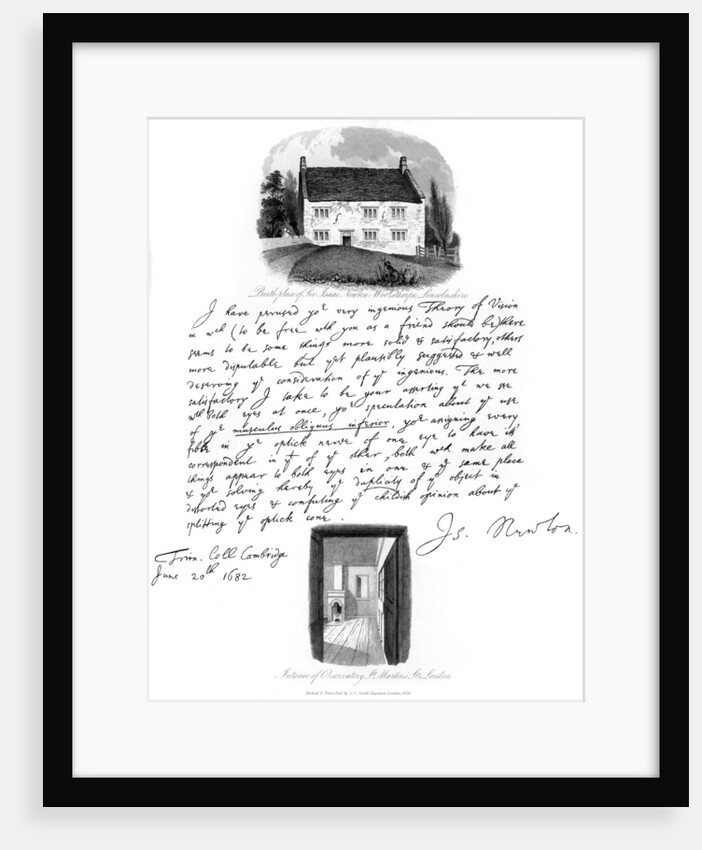 Birth-place of Sir Isaac Newton, Woolsthorpe, Lincolnshire
I have perused yoʳ very ingenious Theory of Vision
in wᶜʰ (to be free wᵗʰ you as a friend should be) there
seems to be some things more solid & satisfactory, others
more disputable but yet plausibly suggested & well
deserving yᵉ consideration of yᵉ ingenious. The more
satisfactory I take to be your asserting yᵗ we see
wᵗʰ both eyes at once, yoʳ speculation about yᵉ use
of yᵉ musculus obliquus inferior, yoʳ assigning every
fibre in yᵉ optick nerve of one eye to have its
correspondent in yᵗ of yᵉ other, both wᶜʰ make all
things appear to both eyes in one & yᵉ same place
& yoʳ solving hereby yᵉ duplicity of yᵉ object in
distorted eyes & confuting yᵉ childish opinion about yᵉ
splitting yᵉ optick cone.
Is. Newton.
Trin. Coll Cambridge
June 20ᵗʰ 1682
Interior of Observatory, Sᵗ Martins Sᵗ, London
Published by C. J. Smith, London